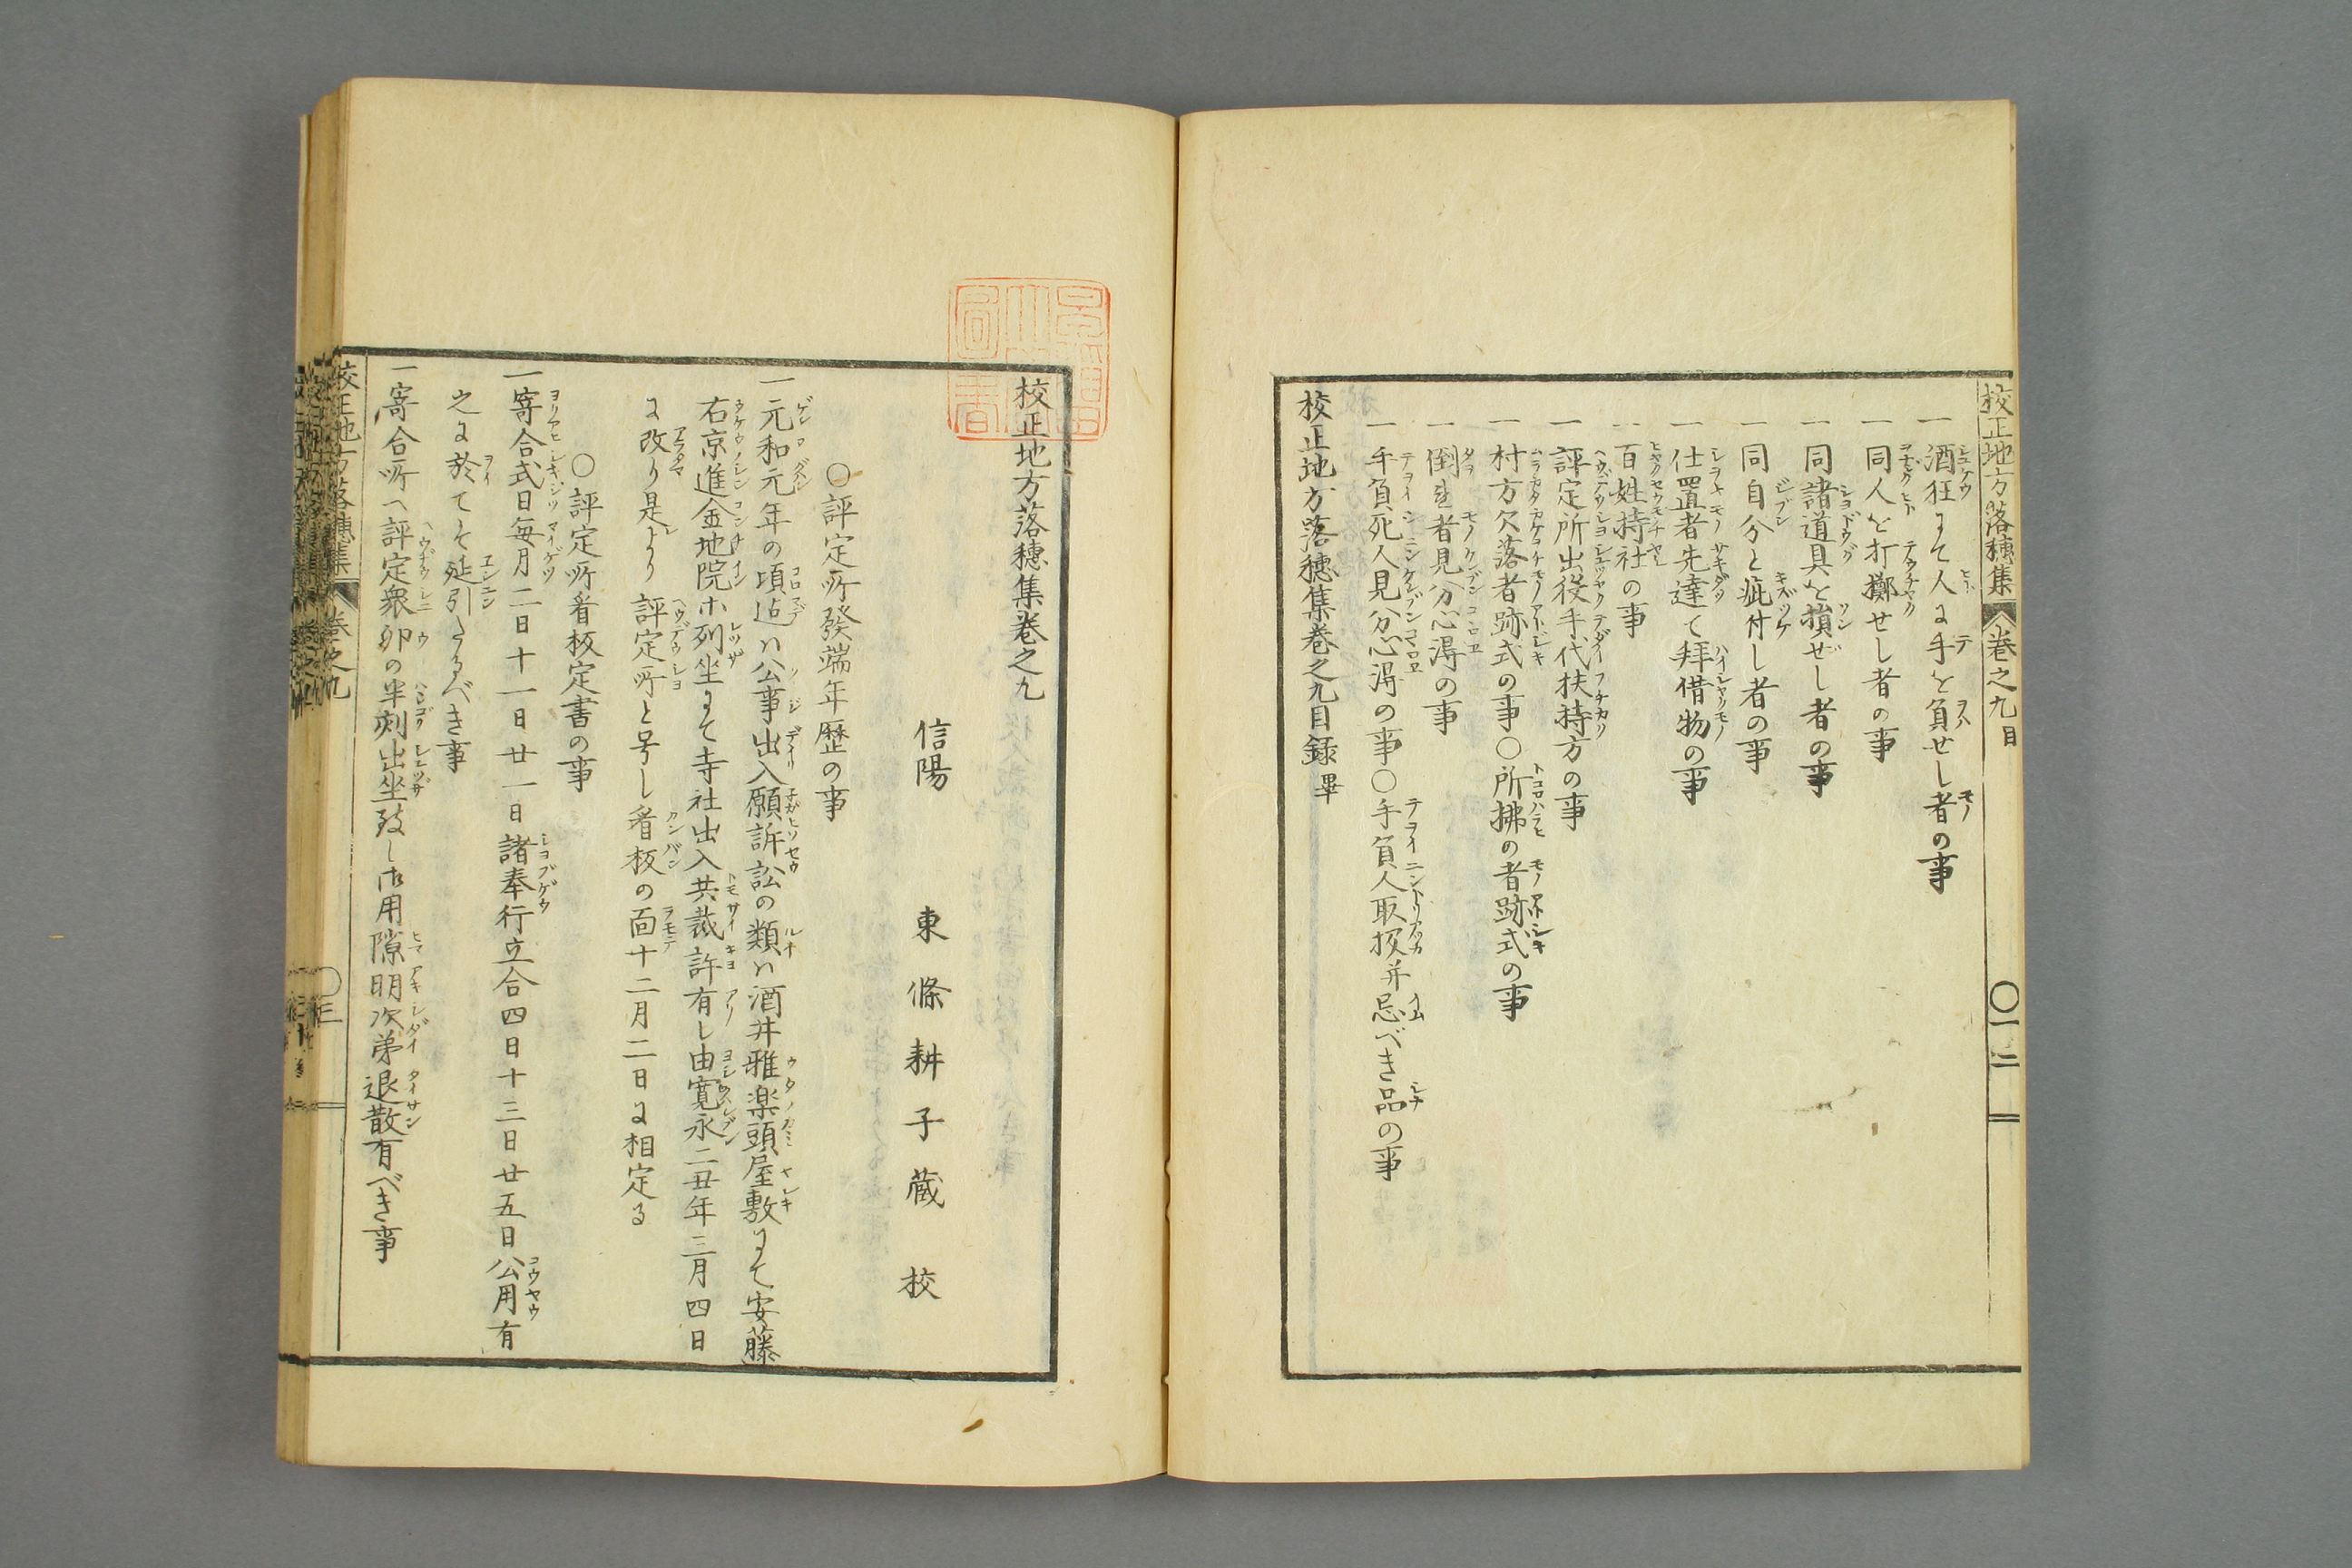 校正地方落穗集 巻之九目 〇一二
一酒狂にて人に手を負せし者の事
一同人を打擲せし者の事
一同諸道具を損ぜし者の事
一同自分と疵付し者の事
一仕置者先達て拜借物の事
一百姓持社の事
一評定所出役手代扶持方の事
一村方欠落者跡式の事〇所拂の者跡式の事
一倒死者見分心得の事
一手負死人見分心得の事〇手負人取扱并忌べき品の事
校正地方落穗集巻之九目録畢
校正地方落穗集巻之九
信陽 東條耕子蔵 校
〇評定所發端年歴の事
一元和元年の頃迠ハ公事出入願訴訟の類ハ酒井雅楽頭屋敷にて安藤
右京進金地院ホ列坐にて寺社出入共裁許有し由寛永二丑年三月四日
に改り是より評定所と号し看板の面十二月二日に相定る
〇評定所看板定書の事
一寄合式日毎月二日十一日廿一日諸奉行立合四日十三日廿五日公用有
之に於てそ延引たるべき事
一寄合所へ評定衆卯の半刻出坐致し御用隙明次第退散有べき事
校正地方落穗集 巻之九 〇三